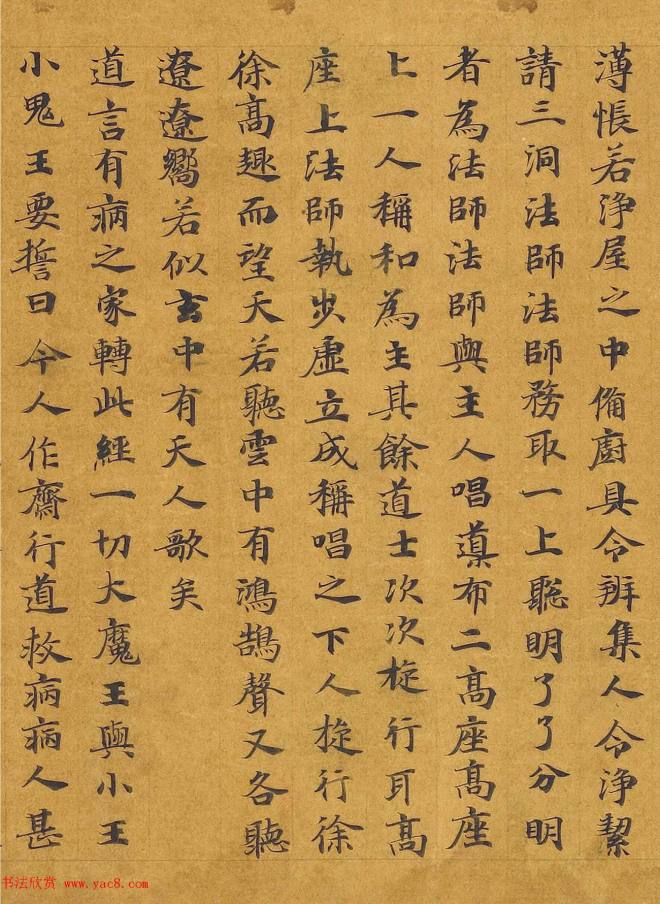 薄悵若淨屋之中備廚具令辨集人令淨絜
請三洞法師法師務取一上聡明了了分明
者為法師法師與主人唱導布二髙座髙座
上一人稱和為主其餘道士次次旋行耳髙
座上法師執步虛立成稱唱之下人旋行徐
徐髙趣而望天若聽雲中有鴻鵠聲又各聽
遼遼嚮若似玄中有天人歌矣
道言有病之家轉此經一切大魔王與小王
小鬼王要誓曰今人作齋行道救病病人甚
书法欣赏 www.yac8.com